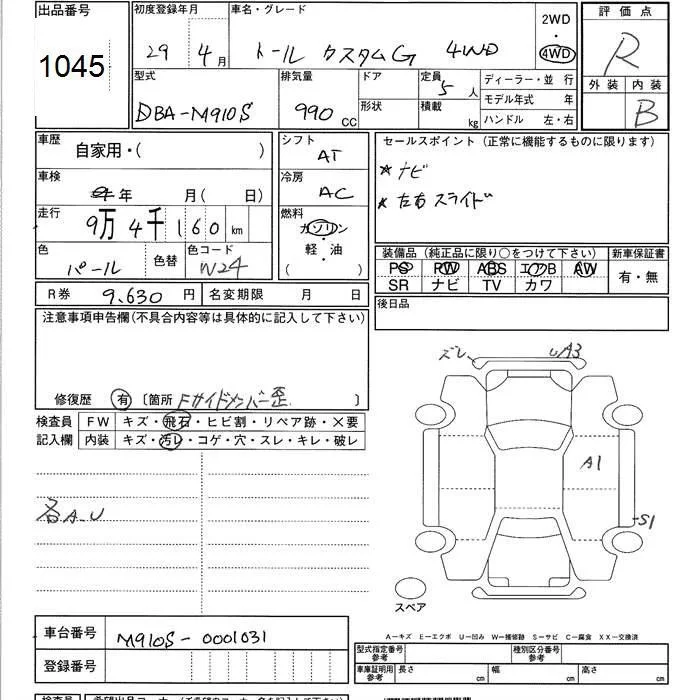 出品番号
1045
初度登録年月
29年 4月
車名・グレード
トール カスタムG 4WD
2WD
・
4WD
評価点
R
外装 内装
B
型式
DBA-M910S
排気量
990 CC
ドア
形状
定員
5人
積載
kg
ディーラー・並行
モデル年式 年
ハンドル 左・右
車歴
自家用・( )
車検
年 月( 日)
走行
9万4千160 km
色
パール
色替
色コード
W24
シフト
AT
冷房
AC
燃料
ガソリン
・
軽・油
( )
セールスポイント(正常に機能するものに限ります)
★ナビ
★左右スライド
装備品(純正品に限り○をつけて下さい)
PS PW ABS エアB AW
SR ナビ TV カワ
新車保証書
有・無
R券 9,630円
名変期限 月 日
後日品
注意事項申告欄(不具合内容等は具体的に記入して下さい)
修復歴 有 〔箇所 Fサイドメンバー歪 〕
検査員
記入欄
FW キズ・飛石・ヒビ割・リペア跡・×要
内装 キズ・汚レ・コゲ・穴・スレ・キレ・破レ
各A.U
ズレ
UA3
A1
S1
スペア
A−キズ E−エクボ U−凹み W−補修跡 S−サビ C−腐食 XX−交換済
車台番号 M910S-0001031
登録番号
型式指定番号
参考
種別区分番号
参考
車庫証明用
参考
長さ cm 幅 cm 高さ cm